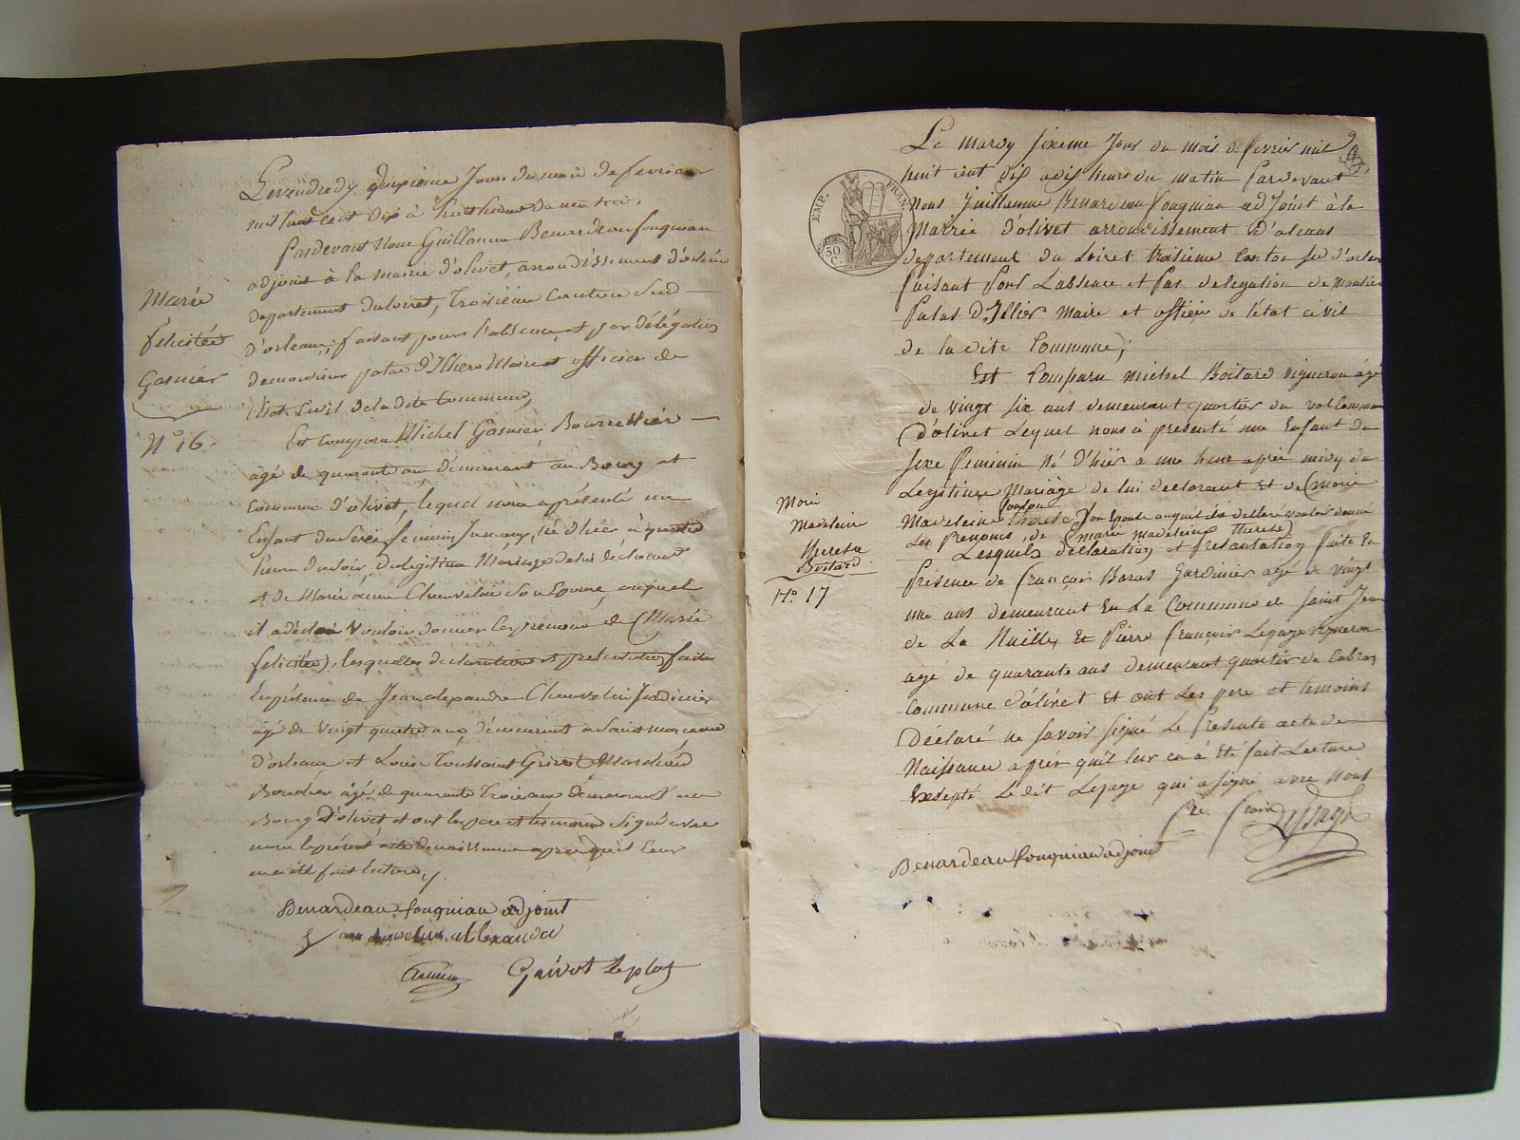 Marie
felicitée
Gasnier
N° 16.
Levendredy deuxieme Jour du mois de fevrier
mil huit cent dix à huit heures du
Pardevant Nous Guillaume Benardeau fougniau
adjoint à la mairie d'olivet, arrondissement d'orléans
departement duloiret, troisième Canton Sud
d'orleans; faisant pour l'absence, et par délégation
de monsieur palas d'Illiers Maire et officier de
l'état Civil dela dite Commune,
Est comparu Michel Gasnier, Bourrellier
âgé de quarante ans demeurant au Bourg et
Commune d'olivet, lequel nous a présenté un
Enfant du Sexe feminin, né d'hier à quatre
heures du soir, du légitime Mariage de lui déclarant
et de Marie anne Chauvelin Son Epouse, auquel
il a déclaré Vouloir donner les prénoms de (Marie
felicitée), lesquelles declaration et présentation faites
En présence de Jean alexandre Chauvelin Jardinier
âgé de Vingt quatre ans, demeurant à Saint marceau
d'orleans et Louis Toussaint Grivot Marchand
Boucher âgé de quarante Trois ans demeurant au
Bourg D'olivet et ont les pere et temoins Signé avec
nous le présent acte de naissance après qu'il leur
en a été fait lecture,
Benardeau fougniau adjoint
alexandre
Grivot Leplat
EMP. FRAN.
50
C.
Le mardy sixieme Jour du mois de fevrier mil
huit cent dix a dix heures du matin Pardevant
Nous Guillaume Benardeau fougniau adJoint à la
Mairie d'olivet arrondissement d'orleans
departement du Loiret troisieme Canton sud d'orleans
faisant Pour Labsence et Par delegation de Monsieur
Palas D'Illiers Maire et officier de l'état civil
de la dite Commune;
Est Comparu michel Boitard vigneron âgé
de vingt six ans demeurant quartier du val Commune
d'olivet Lequel nous a presenté un Enfant du
sexe feminin Né d'hier a une heure après midy du
Legitime Mariage de lui declarant et de Marie
Madelaine
son Epouse auquel il a déclaré vouloir donner
Les prenoms, de (marie madelaine therese)
Lesquels declaration et presantation faite En
Présence de françois Baras Jardinier agé de vingt
une ans demeurant En La Commune de saint Jean
de La Ruelle, Et Pierre françois Lepage vigneron
agé de quarante ans demeurant quartier de
Commune d'olivet Et ont Les pere et temoins
Déclaré ne savoir signé Le Presente acte de
Naissance après qu'il leur en à Eté fait Lecture
Exsepté Ledit Lepage qui a signé avec Nous
Marie
Madelaine
therese
Boitard
N° 17
Benardeau fougniau adjoint